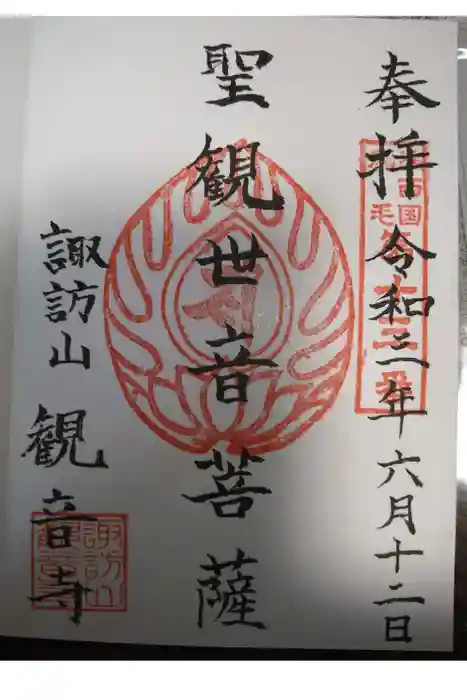 奉拝 令和三年六月十二日
聖観世音菩薩
諏訪山 観音寺
諏訪山
観音寺